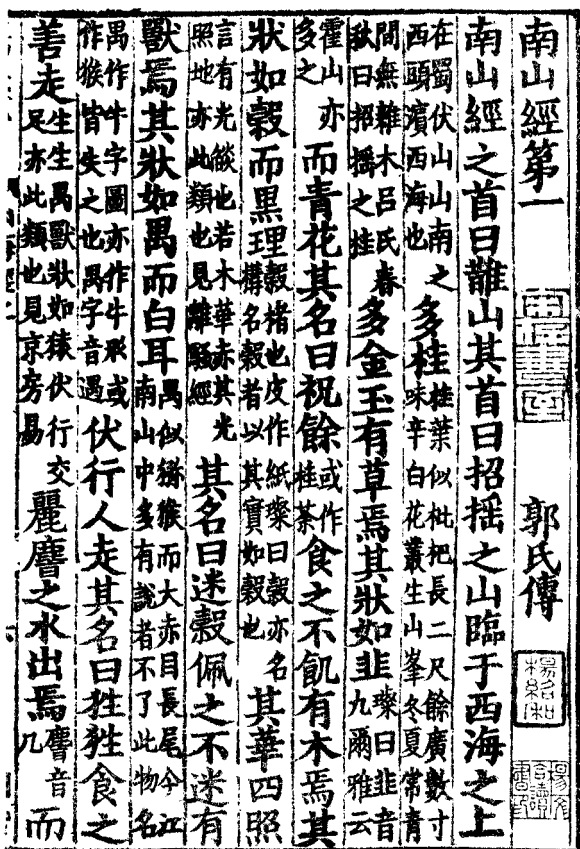 南山經第一 郭氏傳
南山經之首曰䧿山其首曰招搖之山臨于西海之上
在蜀伏山山南之西頭濱西海也多桂桂葉似枇杷長二尺餘廣數寸味辛白花叢生山峯冬夏常青
間無雜木呂氏春秋曰招搖之桂多金玉有草焉其狀如韭璨曰韭音九爾雅云
霍山亦多之而青花其名曰祝餘或作桂荼食之不飢有木焉其
狀如榖而黒理榖楮也皮作紙璨曰榖亦名構名榖者以其實如榖也其華四照
言有光燄也若木華赤其光照地亦此類也見離騷經其名曰迷榖佩之不迷有
獸焉其狀如禺而白耳禺似獼猴而大赤目長尾今江南山中多有說者不了此物名
禺作牛字圖亦作牛形或作猴皆失之也禺字音遇伏行人走其名曰狌狌食之
善走生生禺獸狀如猿伏行交足亦此類也見京房易麗䴢之水出焉䴢音几而
楊紹和